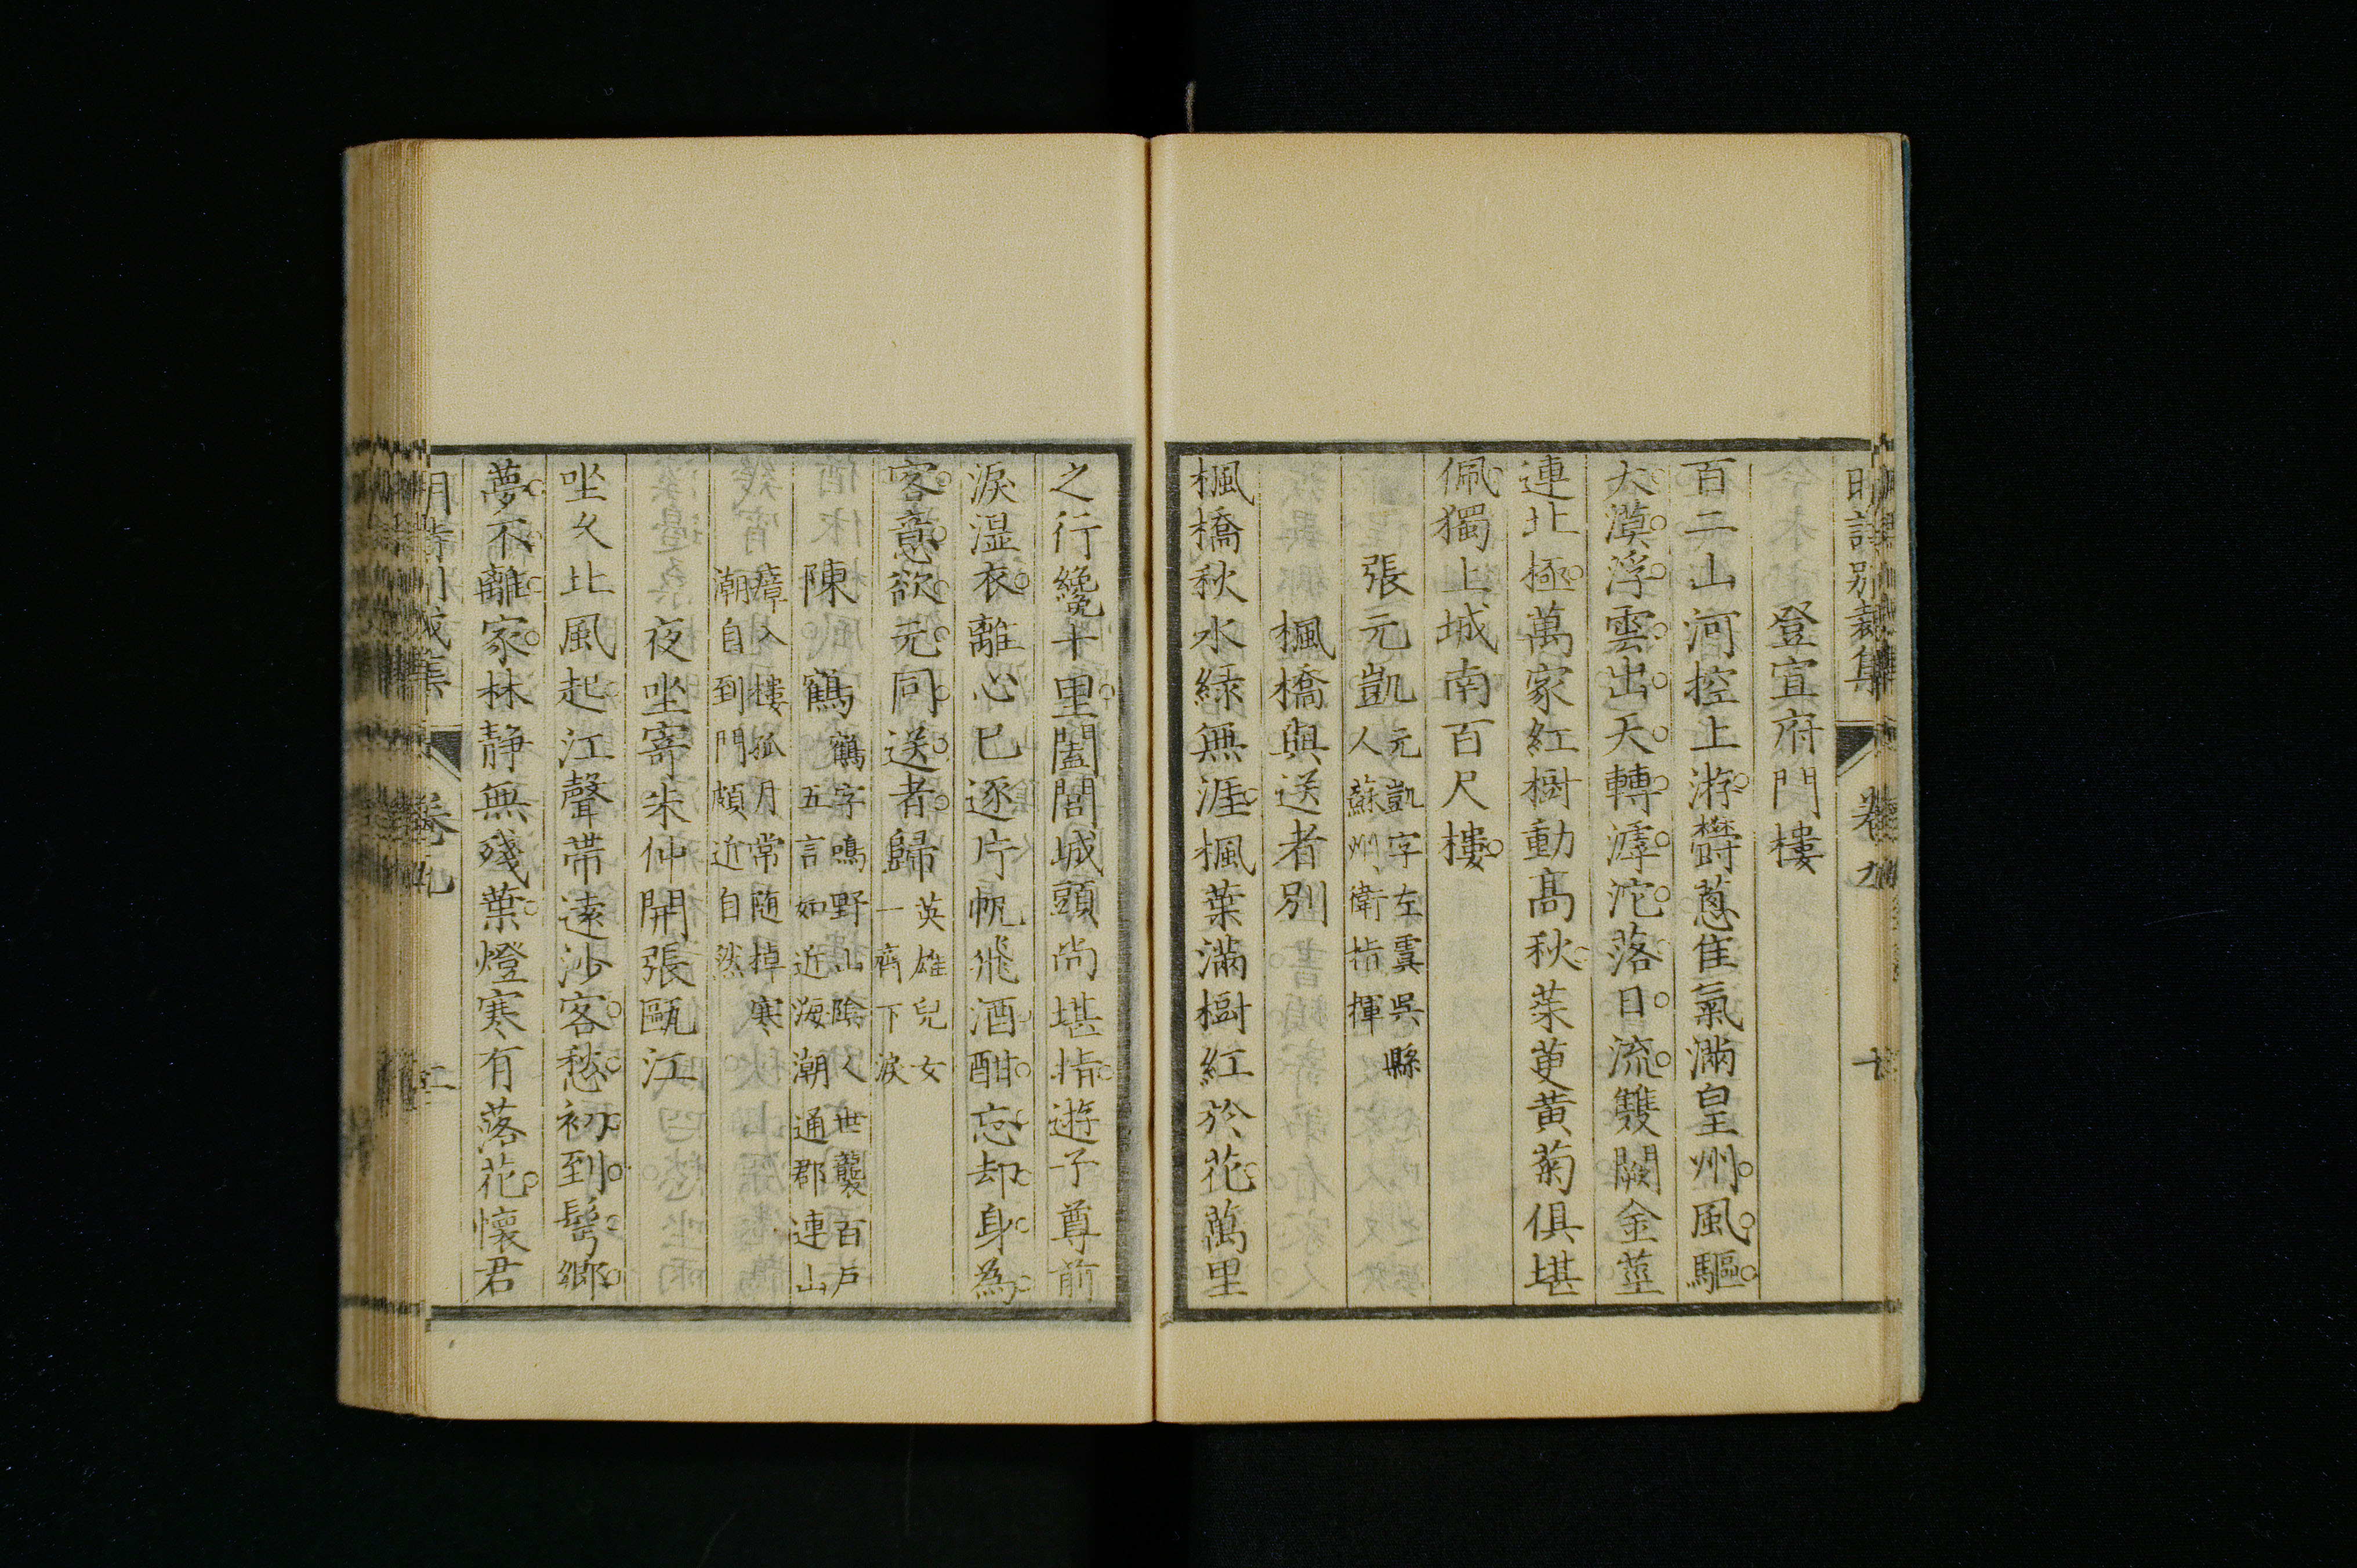 明詩別裁集 卷九
登宣府門樓
百二山河控上游鬱蔥隹氣滿皇州風驅
大漠浮雲出天轉滹沱落日流雙闕金莖
連北極萬家紅樹動高秋茱萸黃菊俱堪
佩獨上城南百尺樓
張元凱 元凱字左虞吳縣
人蘇州衛指揮
楓橋與送者別
楓橋秋水綠無涯楓葉滿樹紅於花萬里
之行纔十里闔閭城頭尚堪指遊子尊前
淚溼衣離心已逐片帆飛酒酣忘却身為
客意欲元同送者歸 英雄兒女
一齊下淚
陳鶴 鶴字鳴野山陰人世襲百戶
五言如近海潮通郡連山
瘴入樓孤月常随棹寒
潮自到門頗近自然
夜坐寄朱仲開張甌江
坐久北風起江聲帶遠沙客愁初到鬢鄉
夢不離家林靜無殘葉燈寒有落花懷君
明詩別裁集 卷九